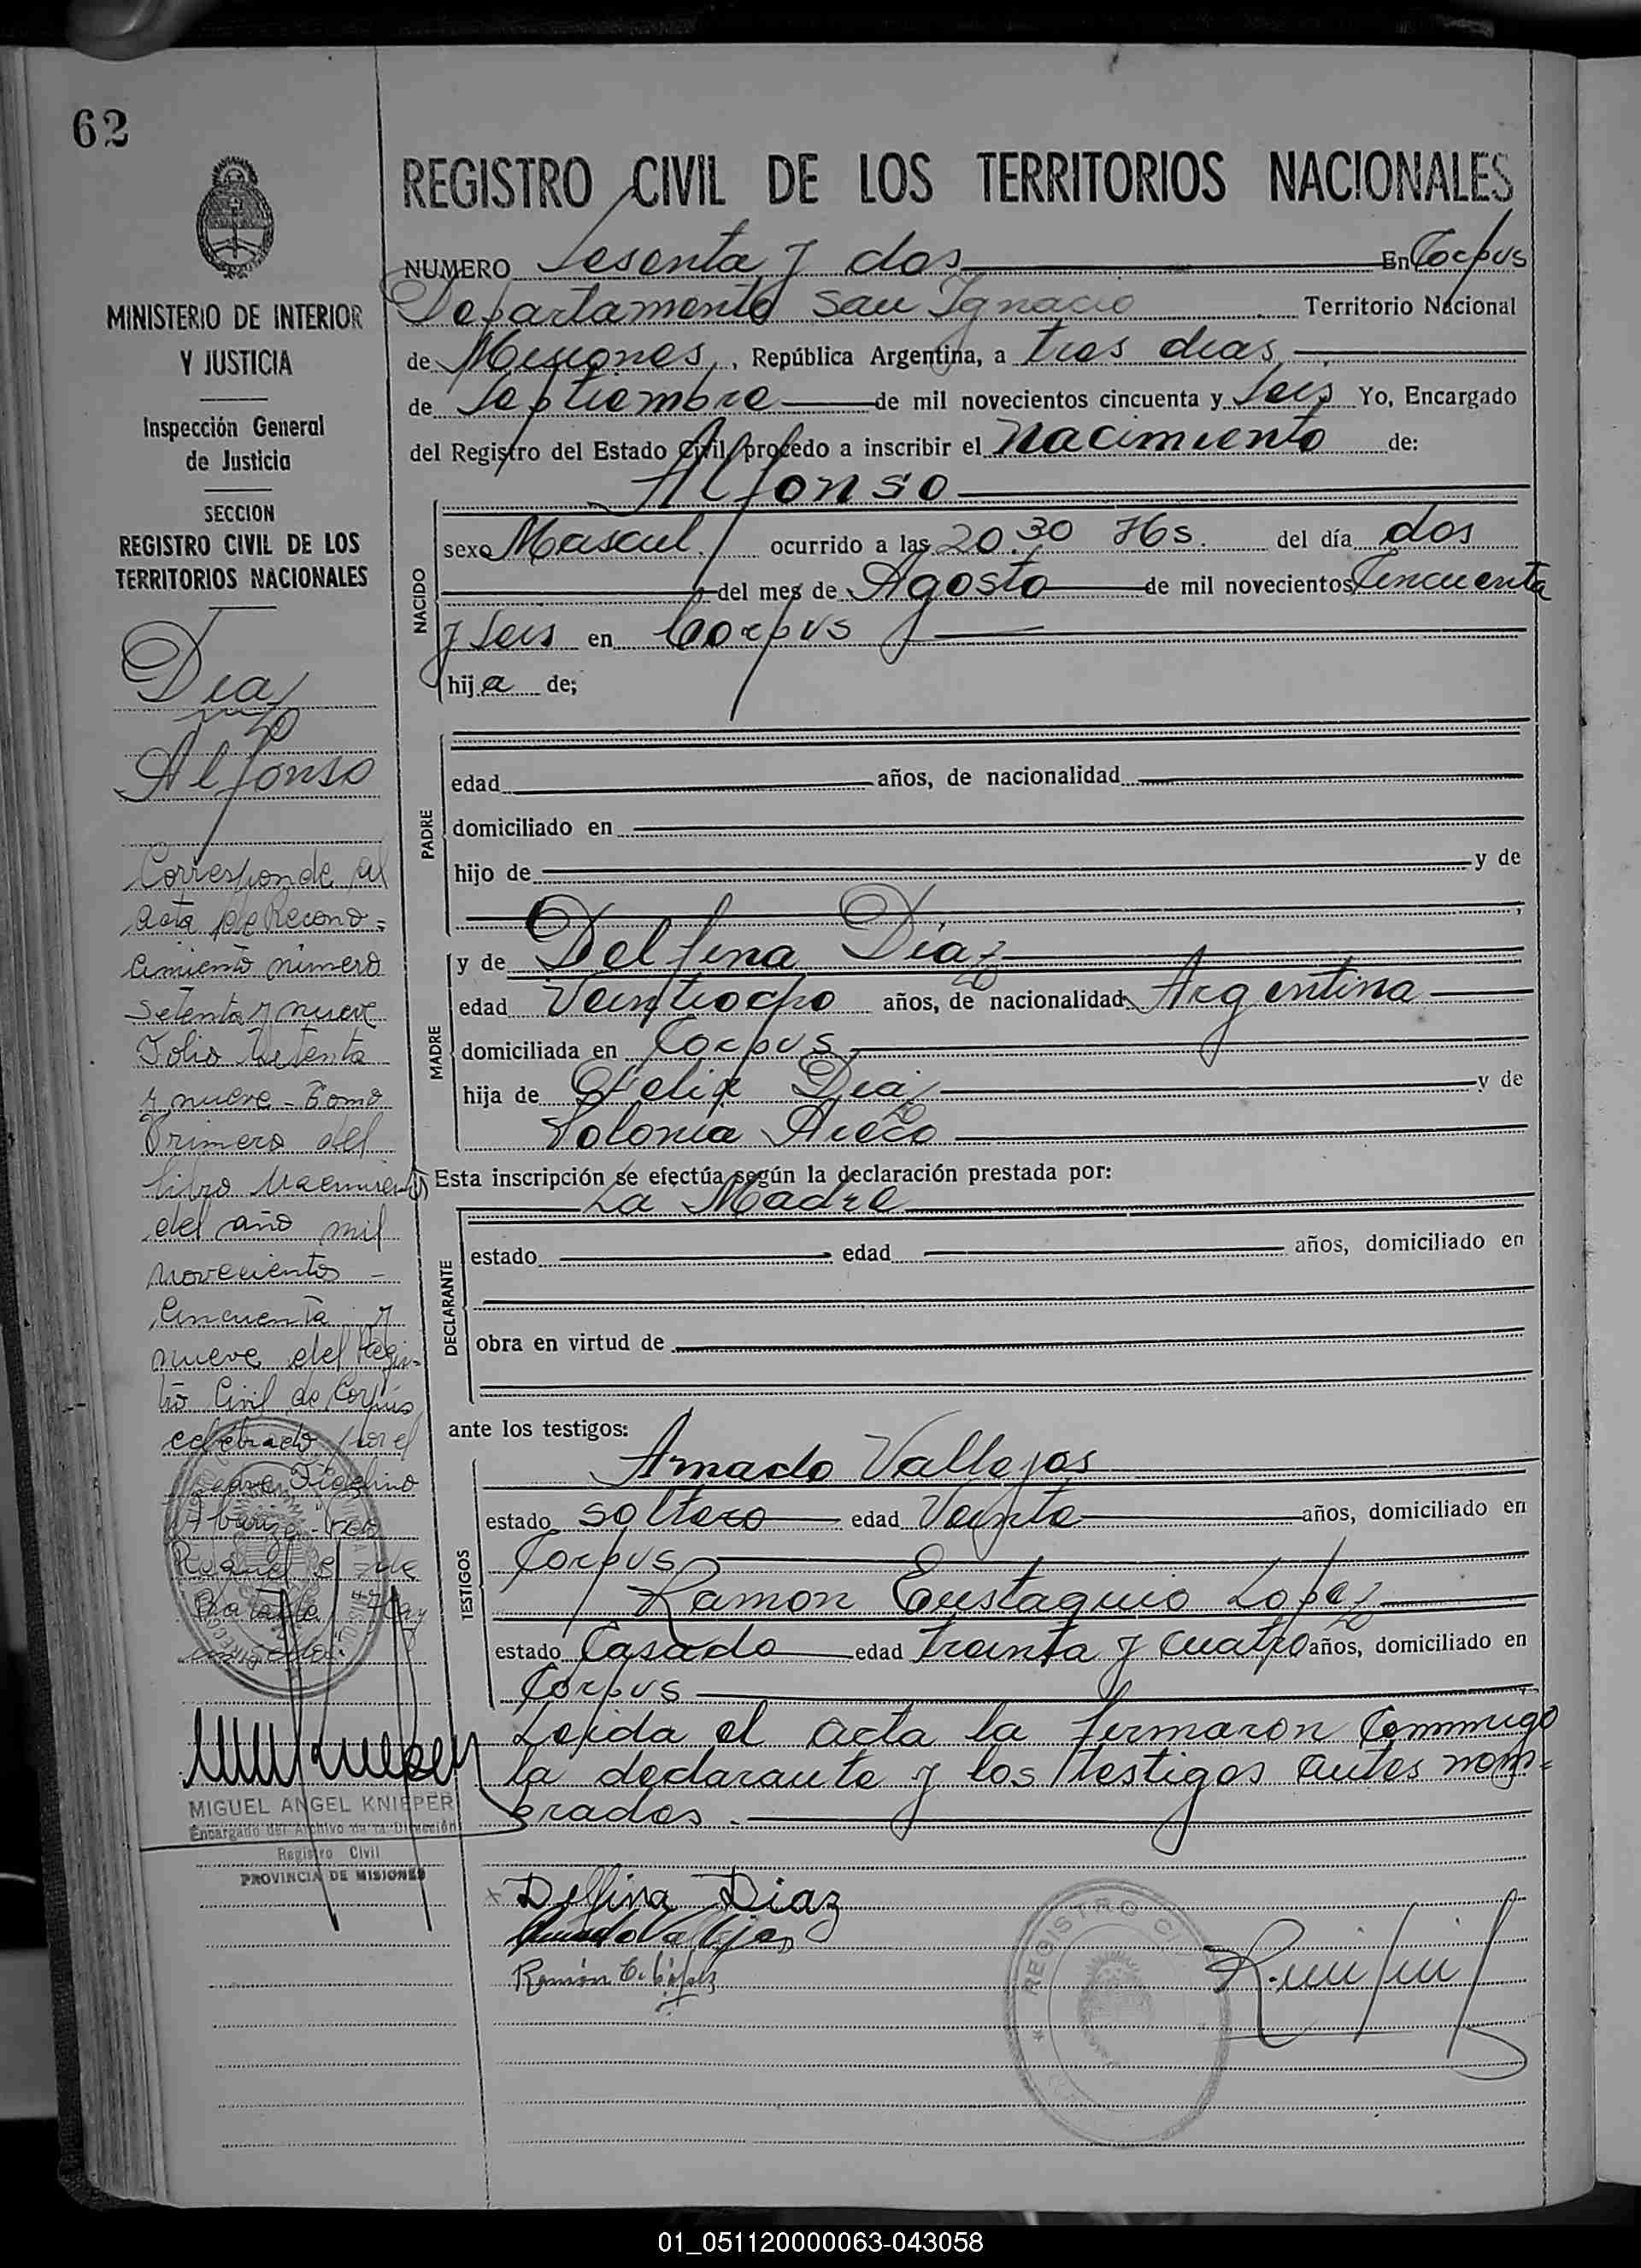 62
REGISTRO CIVIL DE LOS TERRITORIOS NACIONALES
MINISTERIO DE INTERIOR
Y JUSTICIA
Inspección General
de Justicia
SECCION
REGISTRO CIVIL DE LOS
TERRITORIOS NACIONALES
Diaz
Alfonso
Corresponde al
acta de Recono=
cimiento número
setenta y nueve
Folio setenta
y nueve - Tomo
Primero del
libro Nacimientos
del año mil
novecientos -
cincuenta y
nueve del Regis-
tro Civil de Corpus
celebrado por el
MIGUEL ANGEL KNIEPER
Encargado del Archivo de la Dirección
Registro Civil
PROVINCIA DE MISIONES
NUMERO Sesenta y dos En Corpus
Departamento San Ignacio Territorio Nacional
de Misiones, República Argentina, a tres dias
de Septiembre de mil novecientos cincuenta y seis Yo, Encargado
del Registro del Estado Civil, procedo a inscribir el Nacimiento de:
Alfonso
NACIDO
sexo Mascul. ocurrido a las 20.30 Hs. del día dos
del mes de Agosto de mil novecientos cincuenta
y seis en Corpus
hija de;
PADRE
edad años, de nacionalidad
domiciliado en
hijo de y de
MADRE
y de Delfina Diaz
edad Veintiocho años, de nacionalidad Argentina
domiciliada en Corpus
hija de Felix Diaz y de
Polonia
Esta inscripción se efectúa según la declaración prestada por:
La Madre
DECLARANTE
estado edad años, domiciliado en
obra en virtud de
ante los testigos:
TESTIGOS
Amado Vallejos
estado soltero edad Veinte años, domiciliado en
Corpus
Ramon Eustaquio Lopez
estado Casado edad treinta y cuatro años, domiciliado en
Corpus
Leida el acta la firmaron commigo
la declarante y los testigos antes nom=
brados.
Delfina Diaz
Amado Vallejos
Ramón E. López
REGISTRO CIVIL
01_051120000063-043058